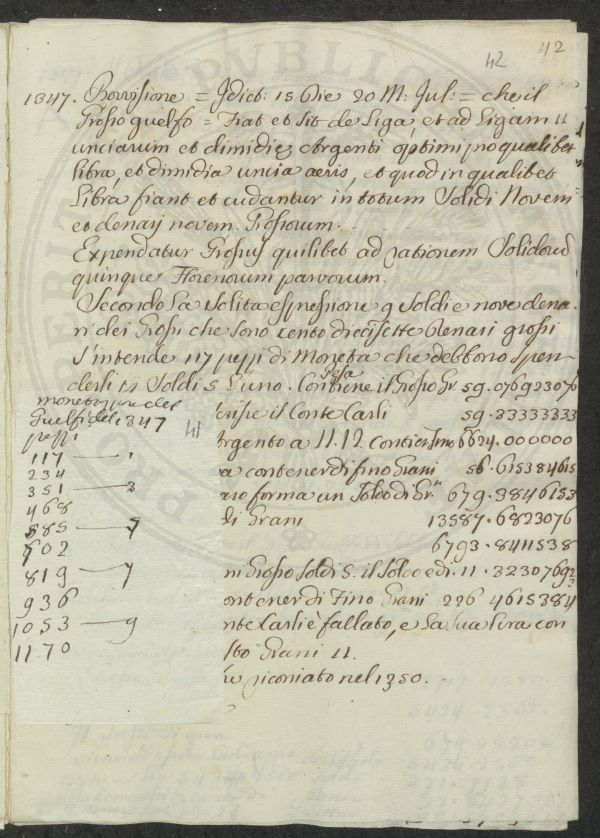 42
42
1347. Provisione = Jdict: 15 Die 20 M: Jul: = che il
Grosso guelfo = Fiat et sit de Liga, et ad Ligam 11
unciarum et dimidie Argenti optimi pro qualibet
libra, et dimidia uncia aeris, et quod in qualibet
Libra fiant et cudantur in totum Solidi Novem
et denarij novem Grossorum.
Expendatur Grossus quilibet ad rationem Solidorum
quinque Florenorum parvorum.
Secondo la solita espressione g Soldi e nove dena
ri dei Grossi che sono cento diecisette denari grossi
s'intende 117 pezzi di Moneta che debbono spen-
dersi Soldi 5 l'uno. Contiene il Grosso Gr. 59.07692307
pesa
monetazione del
Guelfi del 1347
pezzi
117 — 1
234
351 — 3
468
585 — 5
702
819 — 7
936
1053 — 9
1170
41
erisse il Conte Carli 59.23333333
Argento a 11.12 contien fino 6624.000000
a contener di fino Grani 56.61538461
ario forma un Soldo di Gr. 679.3846153
di Grani 13587.6823076
6793.8411538
ni Grosso Soldi 5. il Soldo è di 11.3230769
ontener di Fino Grani 226 4615384
nte Carli è fallato, e la sua Lira con
Grani 11.
riconiato nel 1350.